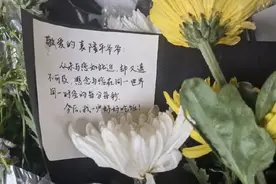 敬爱的袁隆平爷爷:
从未与您如此近,却又遥
不可及,感念与您在同一世界
同一时空的每分每秒。
今后,我一定好好吃饭!